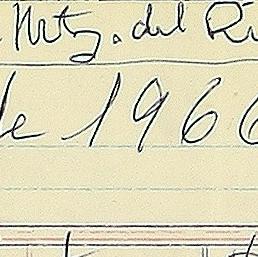 Mtz. del Rí
de 1966